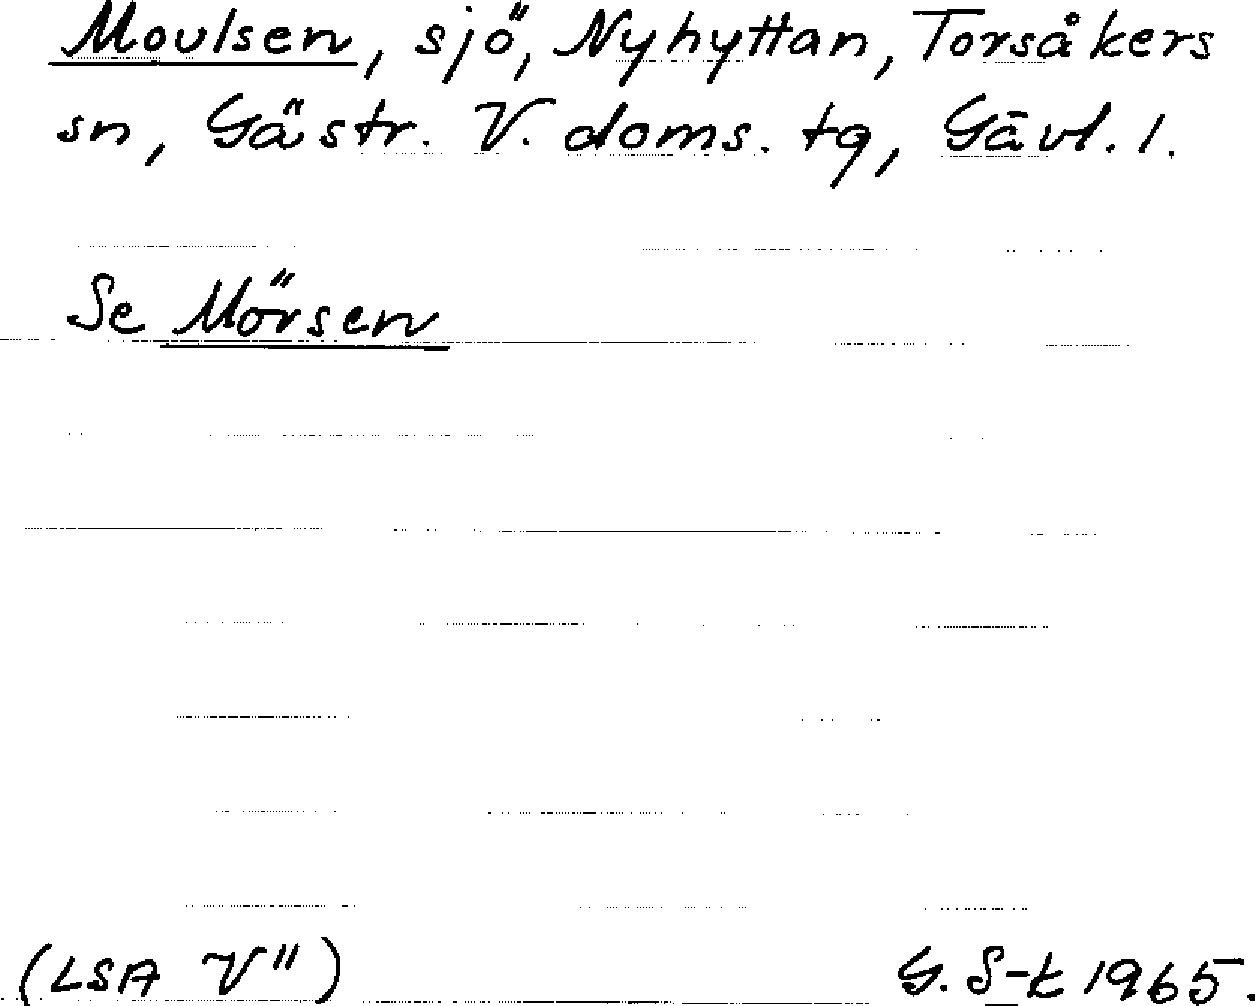 Moulsen, sjö, Nyhyttan, Torsåkers
sn, Gästr. V. doms. tg, Gävl. l.
Se Mörsen
(LSA V") G. S-k 1965